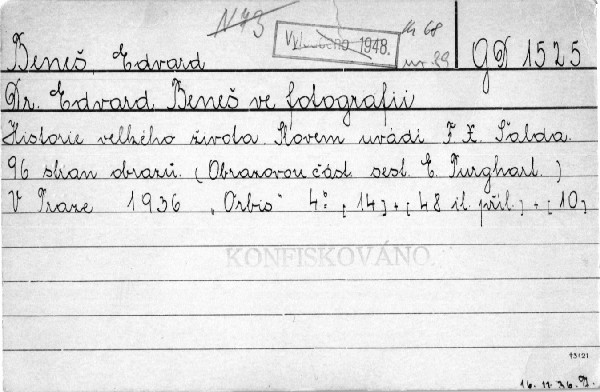 N43
Vyloučeno 1948.
Beneš, Edvard
GD 1525
Dr. Edvard Beneš ve fotografii
Historie velkého života. Slovem uvádí F. X. Šalda.
96 stran obrazů. (Obrazovou část sest. E. Purghart.)
V Praze 1936 „Orbis" 4° [14]+[48 il. příl.]+[10]
KONFISKOVÁNO.
13121
16. 11. 36.